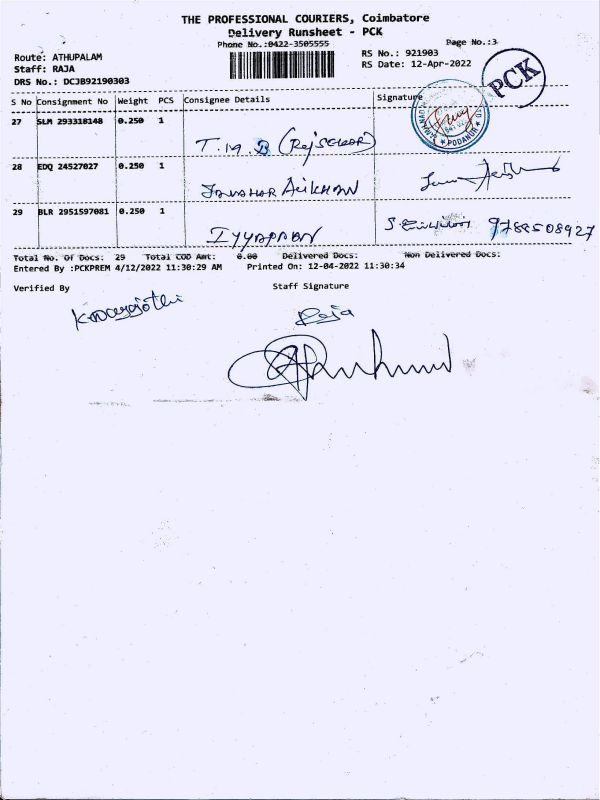 THE PROFESSIONAL COURIERS, Coimbatore
Delivery Runsheet - PCK
Phone No.:0422-3505555
Page No.:3
Route: ATHUPALAM
RS No.: 921903
Staff: RAJA
RS Date: 12-Apr-2022
DRS No.: DCJB92190303
PCK
S No Consignment No Weight PCS Consignee Details Signature
27 SLM 293318148 0.250 1
T.M.B (Rajsekar)
PODANUR
28 EDQ 24527027 0.250 1
JAWAHAR ALIKHAN
29 BLR 2951597081 0.250 1
IYYAPPAN
9788508927
Total No. Of Docs: 29 Total COD Amt: 0.00 Delivered Docs: Non Delivered Docs:
Entered By :PCKPREM 4/12/2022 11:30:29 AM Printed On: 12-04-2022 11:30:34
Verified By Staff Signature
Raja